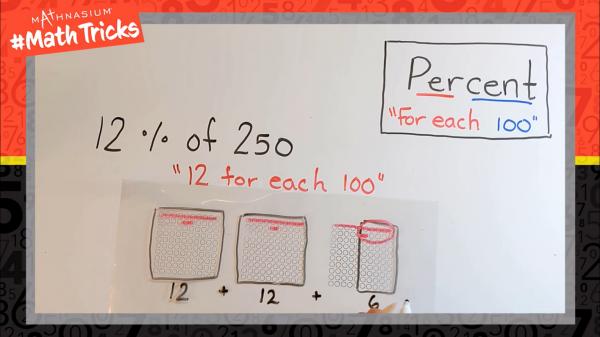 MATHNASIUM
#MathTricks
Percent
"For each 100"
12 % of 250
"12 for each 100"
12 + 12 + 6